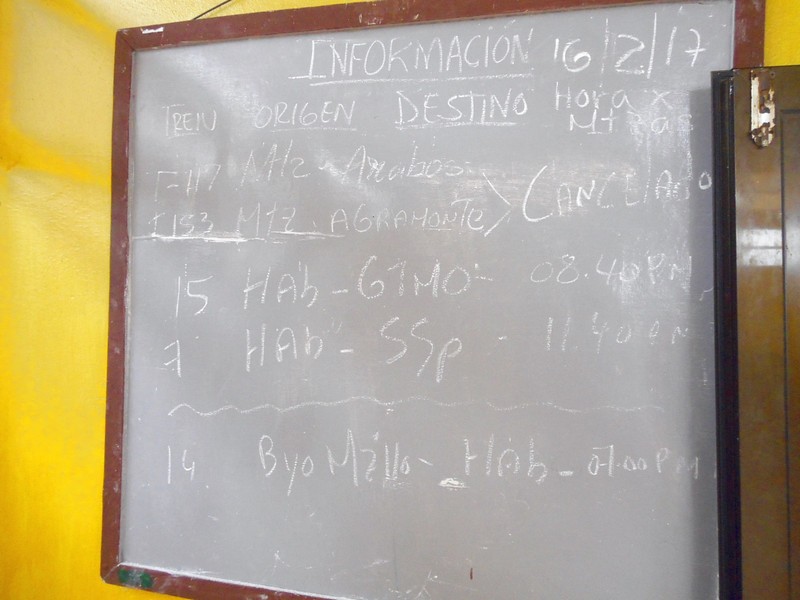 INFORMACIÓN 16/2/17
TREN ORIGEN DESTINO Hora x
Mtzas
Mtz - Arabos
153 Mtz. AGRAMONTE > CANCELADO
15 HAb - GTMO - 08.40 PM
7 HAb - SSp - 11.40 PM
14 Byo Mzllo - HAb - 07.00 PM